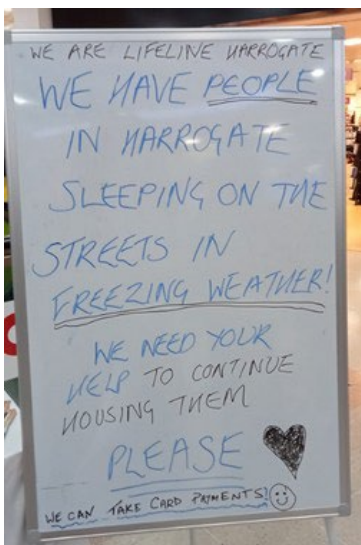 WE ARE LIFELINE HARROGATE
WE HAVE PEOPLE
IN HARROGATE
SLEEPING ON THE
STREETS IN
FREEZING WEATHER!
WE NEED YOUR
HELP TO CONTINUE
HOUSING THEM
PLEASE
WE CAN TAKE CARD PAYMENTS!